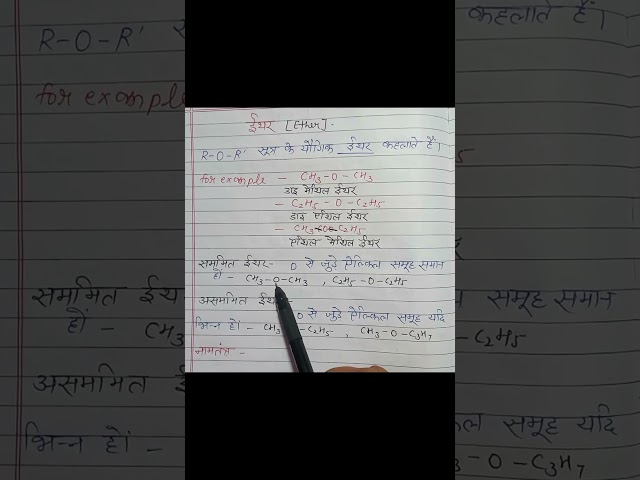 ईथर [Ether] -
R-O-R' सूत्र के यौगिक ईथर कहलाते हैं।
for example - CH₃-O-CH₃
डाइ मेथिल ईथर
- C₂H₅-O-C₂H₅
डाइ एथिल ईथर
- CH₃ C₂H₅
एथिल मेथिल ईथर
सममित ईथर- O से जुड़े ऐल्किल समूह समान
हों - CH₃-O-CH₃ , C₂H₅-O-C₂H₅
असममित ईथर-
O से जुड़े ऐल्किल समूह यदि
भिन्न हों - CH₃ - C₂H₅ , CH₃-O-C₃H₇
नामतंत्र -